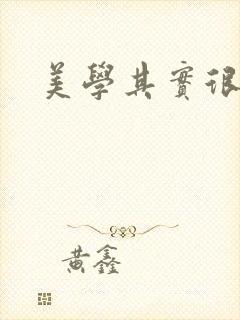 美學其實很
黃鑫